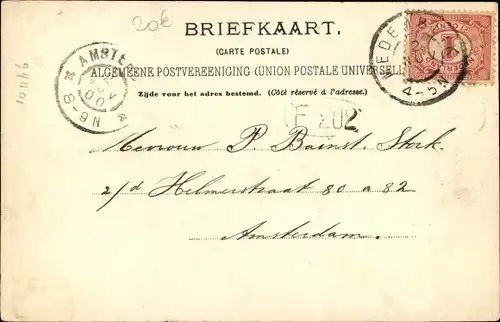 20€
BRIEFKAART.
(CARTE POSTALE)
ALGEMEENE POSTVEREENIGING (UNION POSTALE UNIVERSELLE)
Zijde voor het adres bestemd. (Côté réservé à l'adresse.)
AMSTER
8-9N
4-5N
1
Mevrouw P. Stork.
2/d Helmerstraat 80 a 82
Amsterdam.